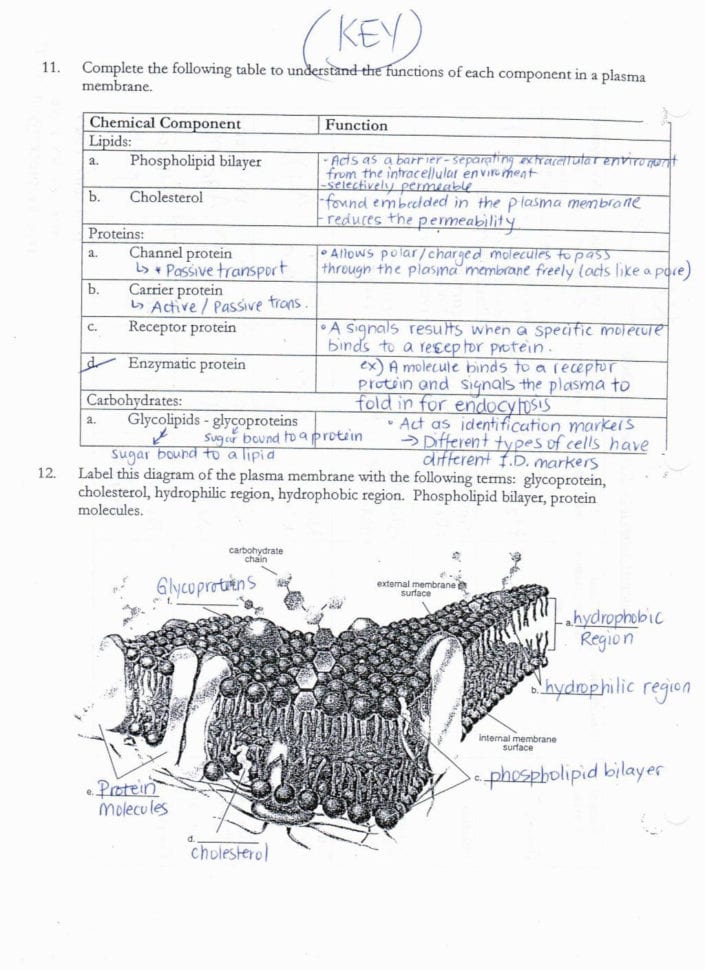 (KEY)
11. Complete the following table to understand the functions of each component in a plasma
membrane.
Chemical Component Function
Lipids:
a. Phospholipid bilayer - Acts as a barrier - separating extracellular enviroment
from the intracellular enviroment
- selectively permeable
b. Cholesterol - found embedded in the plasma membrane
- reduces the permeability
Proteins:
a. Channel protein • Allows polar/charged molecules to pass
↳ * Passive transport through the plasma membrane freely (acts like a pore)
b. Carrier protein
↳ Active / Passive trans.
c. Receptor protein • A signals results when a specific molecule
binds to a receptor protein.
d. Enzymatic protein ex) A molecule binds to a receptor
protein and signals the plasma to
Carbohydrates: fold in for endocytosis
a. Glycolipids - glycoproteins • Act as identification markers
sugar bound to a protein → Different types of cells have
sugar bound to a lipid different I.D. markers
12. Label this diagram of the plasma membrane with the following terms: glycoprotein,
cholesterol, hydrophilic region, hydrophobic region. Phospholipid bilayer, protein
molecules.
carbohydrate
chain
Glycoproteins
f.
external membrane
surface
a. hydrophobic
Region
b. hydrophilic region
internal membrane
surface
c. phospholipid bilayer
e. Protein
molecules
d.
cholesterol